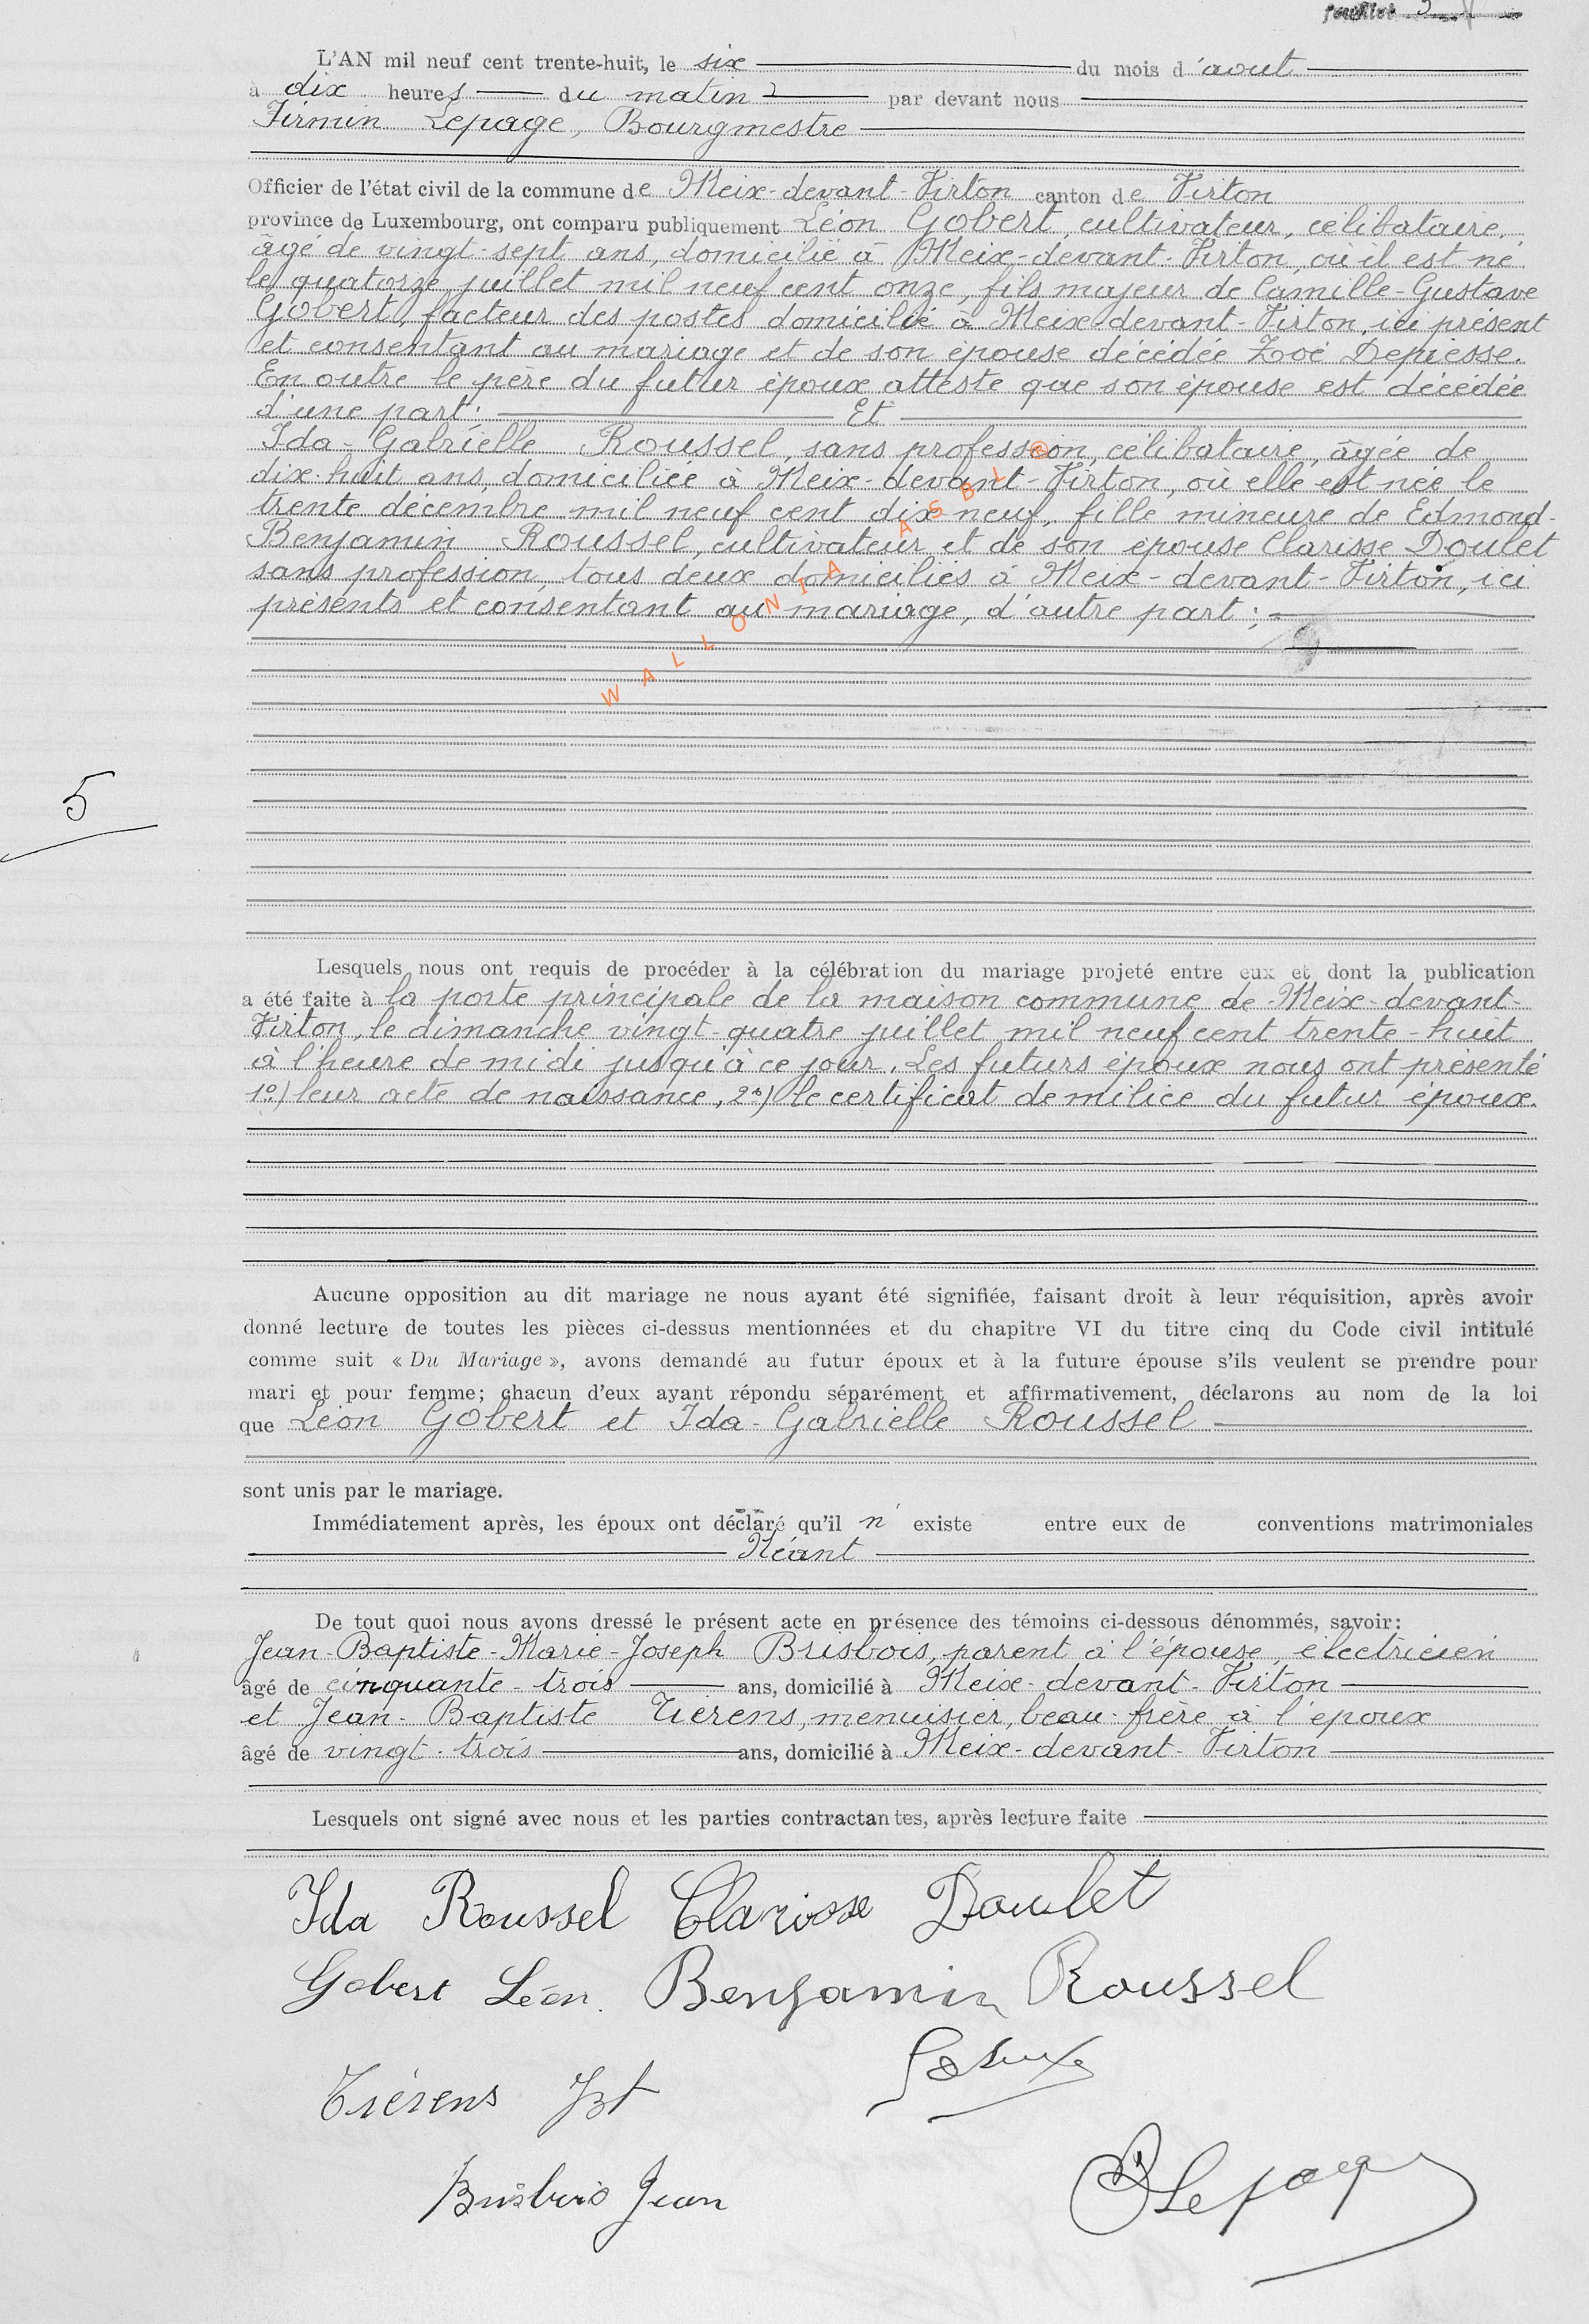 feuillet 5
L'AN mil neuf cent trente-huit, le six du mois d'aout
à dix heures du matin par devant nous
Firmin Lepage, Bourgmestre
Officier de l'état civil de la commune de Meix-devant-Virton canton de Virton
province de Luxembourg, ont comparu publiquement Léon Gobert, cultivateur, célibataire,
âgé de vingt-sept ans, domicilié à Meix-devant-Virton, où il est né
le quatorze juillet mil neuf cent onze, fils majeur de Camille-Gustave
Gobert, facteur des postes domicilié à Meix-devant-Virton, ici présent
et consentant au mariage et de son épouse décédée Zoé Depiesse.
En outre le père du futur époux atteste que son épouse est décédée
d'une part: Et
Ida-Gabrielle Roussel, sans profession, célibataire, âgée de
dix-huit ans, domiciliée à Meix-devant-Virton, où elle est née le
trente décembre mil neuf cent dix-neuf, fille mineure de Edmond-
Benjamin Roussel, cultivateur et de son épouse Clarisse Doulet
sans profession, tous deux domiciliés à Meix-devant-Virton, ici
présents et consentant au mariage, d'autre part:
WALLONIA ASBL ©
5
Lesquels nous ont requis de procéder à la célébration du mariage projeté entre eux et dont la publication
a été faite à la porte principale de la maison commune de Meix-devant-
Virton, le dimanche vingt-quatre juillet mil neuf cent trente-huit
à l'heure de midi jusqu'à ce jour. Les futurs époux nous ont présenté
1o) leur acte de naissance, 2o) le certificat de milice du futur époux.
Aucune opposition au dit mariage ne nous ayant été signifiée, faisant droit à leur réquisition, après avoir
donné lecture de toutes les pièces ci-dessus mentionnées et du chapitre VI du titre cinq du Code civil intitulé
comme suit « Du Mariage », avons demandé au futur époux et à la future épouse s'ils veulent se prendre pour
mari et pour femme; chacun d'eux ayant répondu séparément et affirmativement, déclarons au nom de la loi
que Léon Gobert et Ida-Gabrielle Roussel
sont unis par le mariage.
Immédiatement après, les époux ont déclaré qu'il n' existe entre eux de conventions matrimoniales
Néant
De tout quoi nous avons dressé le présent acte en présence des témoins ci-dessous dénommés, savoir:
Jean-Baptiste-Marie-Joseph Brisbois, parent à l'épouse, électricien
âgé de cinquante-trois ans, domicilié à Meix-devant-Virton
et Jean-Baptiste Tiérens, menuisier, beau-frère à l'époux
âgé de vingt-trois ans, domicilié à Meix-devant-Virton
Lesquels ont signé avec nous et les parties contractantes, après lecture faite
Ida Roussel Clarisse Doulet
Gobert Léon. Benjamin Roussel
Tiérens Jbt
Brisbois Jean
Lepage